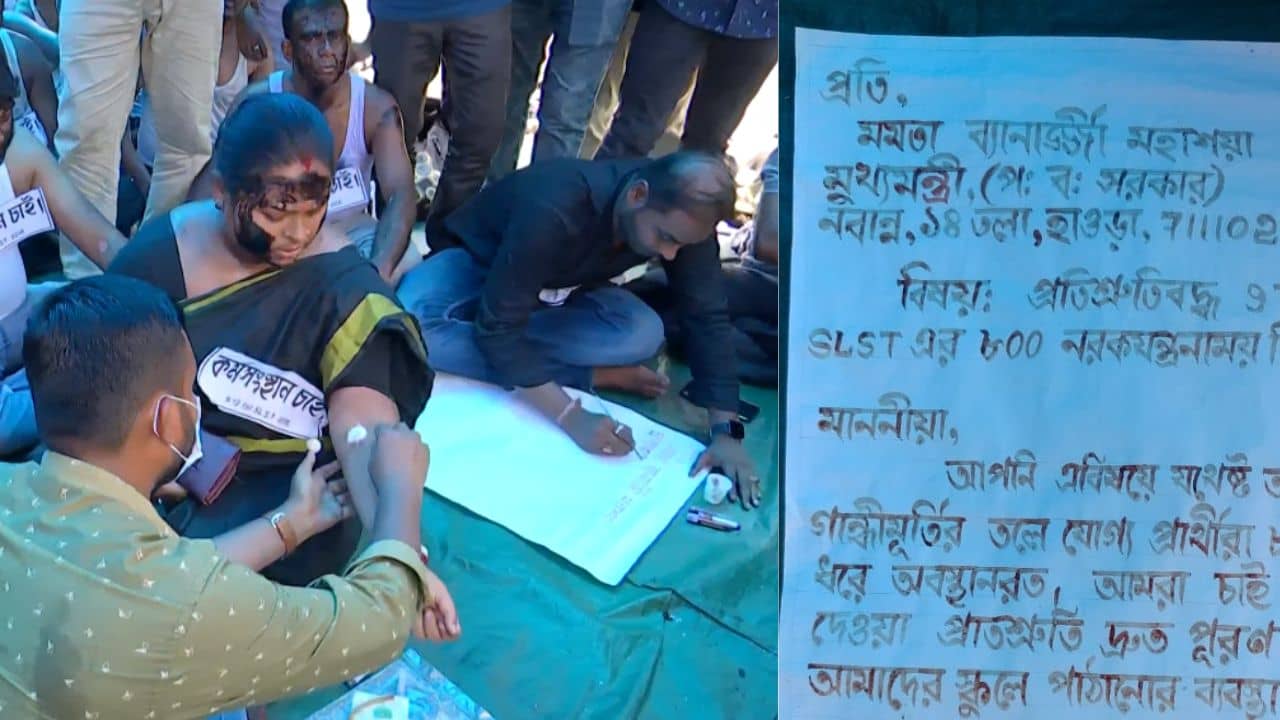 চাই।
চাই।
কর্মসংস্থান চাই
প্রতি,
মমতা ব্যানার্জ্জী মহাশয়া
মুখ্যমন্ত্রী,(প: ব: সরকার)
নবান্ন,১৪ তলা,হাওড়া, 711102
বিষয়: প্রতিশ্রুতিবদ্ধ
SLST এর ৮০০ নরকযন্ত্রনাময়
মাননীয়া,
আপনি এবিষয়ে যথেষ্ট
গান্ধীমূর্তির তলে যোগ্য প্রার্থীরা
ধরে অবস্থানরত, আমরা চাই
দেওয়া প্রতিশ্রুতি দ্রুত পূরণ
আমাদের স্কুলে পাঠানোর ব্যবস্থা